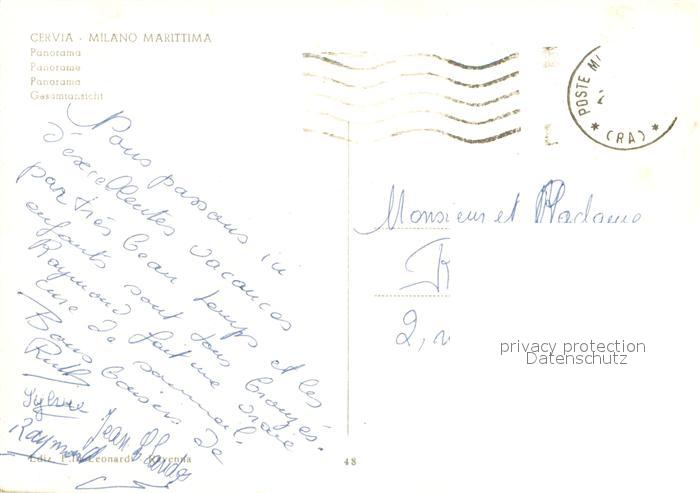 CERVIA - MILANO MARITTIMA
Panorama
Panorama
Panorama
Gesamtansicht
Nous passons ici
d'excellentes vacances
par très beau temps et les
enfants sont tous bronzés.
Raymond fait une vraie
cure de sommeil.
Bons baisers de
Ruth
Sylvie Jean
Raymond
POSTE
(RA)
Monsieur et Madame
2, r
privacy protection
Datenschutz
Ediz. Leonardi - Ravenna
48